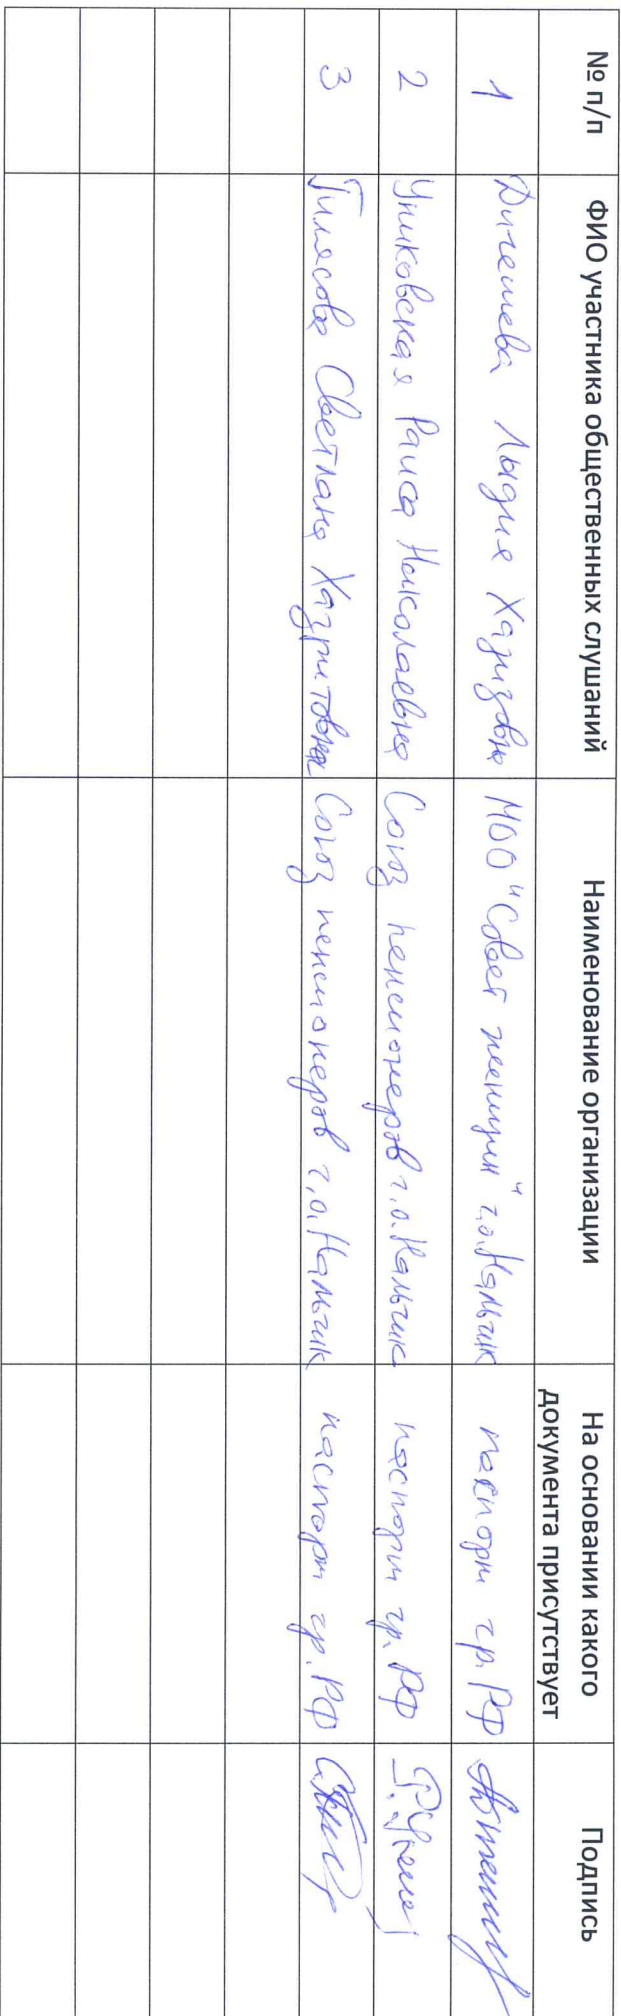 № п/п ФИО участника общественных слушаний Наименование организации На основании какого документа присутствует Подпись
1 Дигешева Лидия МОО "Совет женщин" г.о. Нальчик паспорт гр. РФ
2 Раиса Николаевна Союз пенсионеров г.о. Нальчик паспорт гр. РФ
3 Светлана Союз пенсионеров г.о. Нальчик паспорт гр. РФ